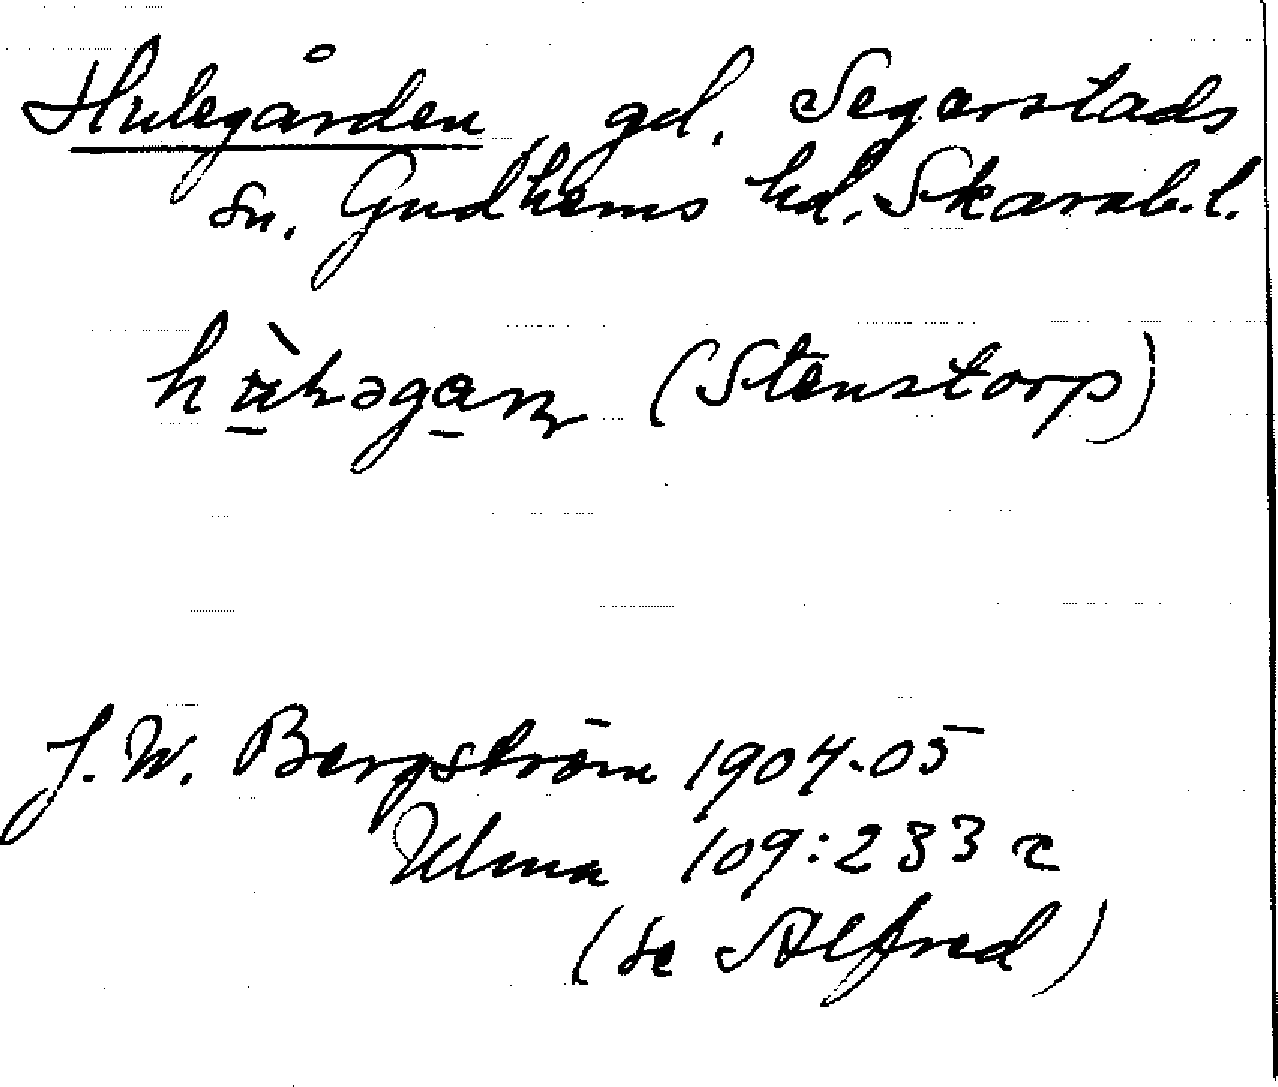 Hulegården, gd. Segerstads
sn. Gudhems hd. Skarab.l.
(Stenstorp)
J. W. Bergström 1904-05
Ulma 109:233
(se Alfred)